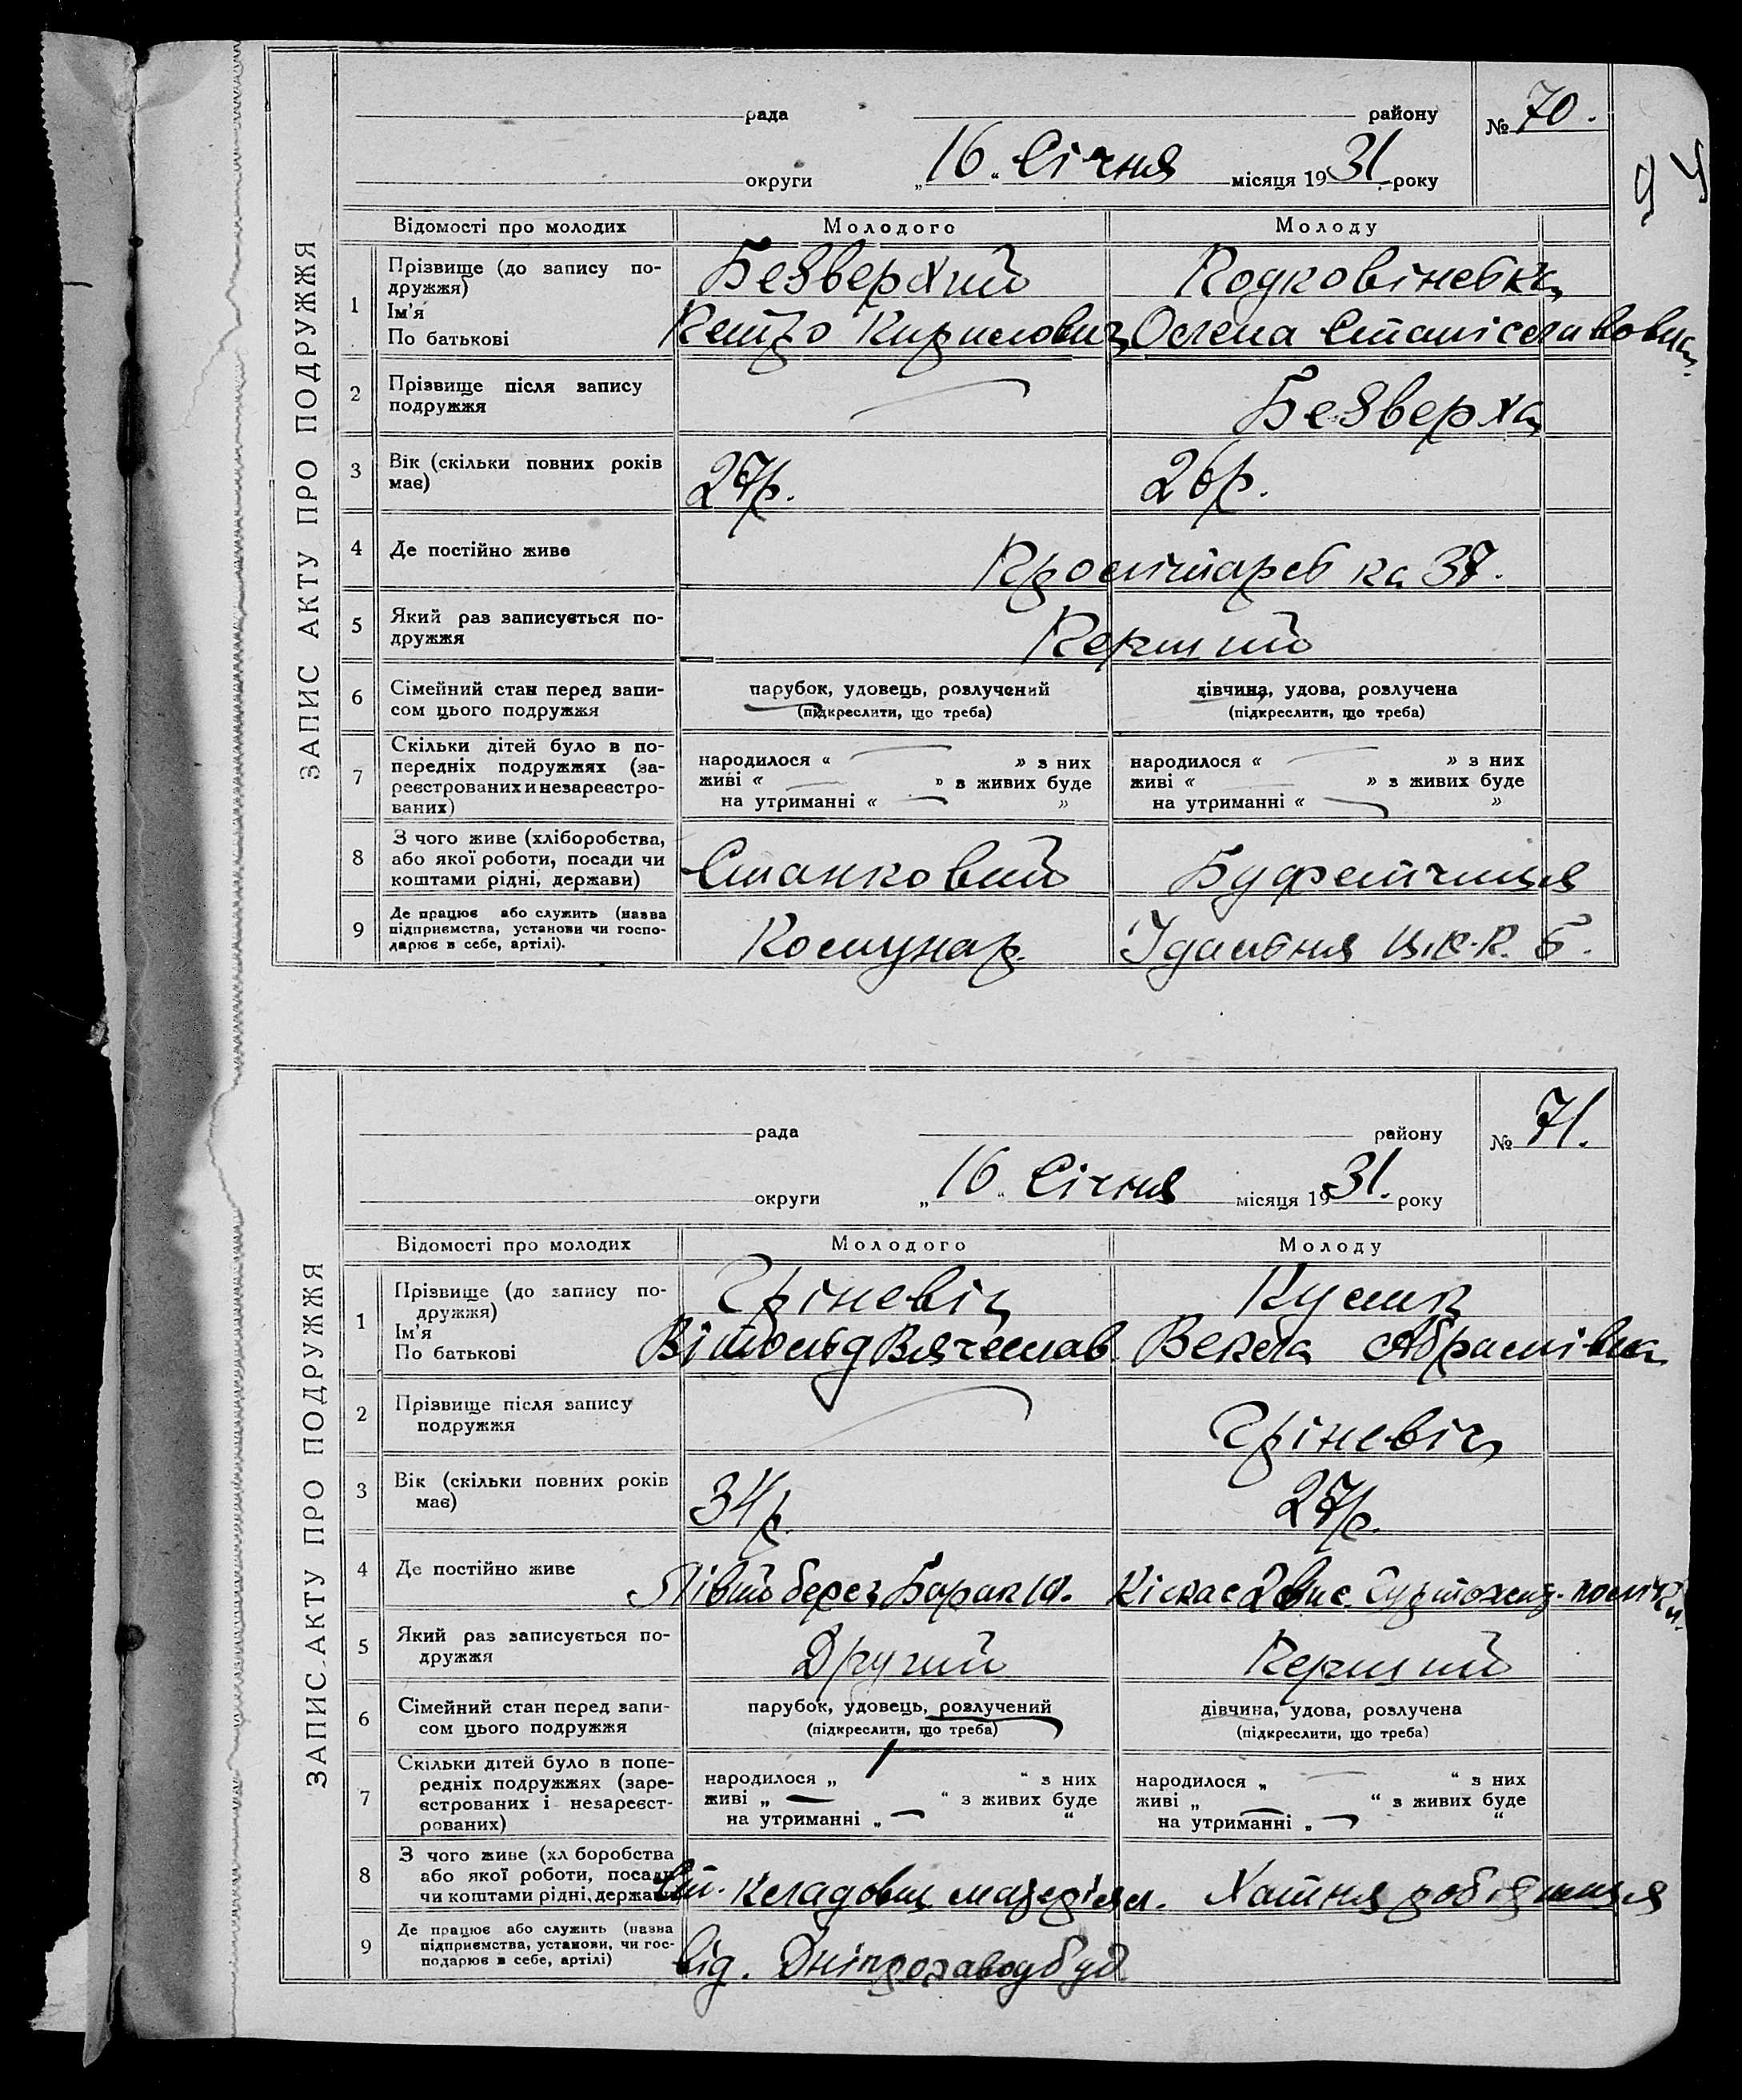 рада района №70.
округи „16“ Січня місяця 1931 року
94
ЗАПИС АКТУ ПРО ПОДРУЖЖЯ
Відомості про молодих Молодого Молоду
1 Прізвище (до запису по-
дружжя) Безверхий Подковінська
Ім'я
По батькові Петро Кирилович Олена Станіславовна
2 Прізвище після запису
подружжя — Безверха
3 Вік (скільки повних років
має) 27р. 26р.
4 Де постійно живе Пролітарська 37.
5 Який раз записується по-
дружжя Перший
6 Сімейний стан перед запи- парубок, удовець, розлучений дівчина, удова, розлучена
сом цього подружжя (підкреслити, що треба) (підкреслити, що треба)
7 Скільки дітей було в по-
передніх подружжях (за- народилося « — » з них народилося « — » з них
реєстрованих и незареєстро- живі « — » з живих буде живі « — » з живих буде
ваних) на утриманні « — » на утриманні « — »
8 З чого живе (хліборобства,
або якої роботи, посади чи
коштами рідні, держави) Станковий Буфетчиця
9 Де працює або служить (назва
підприємства, установи чи госпо-
дарює в себе, артілі). Комунар. Їдальня Ц.Р.К. 6.
рада району №71.
округи „16“ Січня місяця 1931. року
ЗАПИС АКТУ ПРО ПОДРУЖЖЯ
Відомості про молодих Молодого Молоду
1 Прізвище (до запису по-
дружжя) Гріневіч
Ім'я
По батькові Вітольд Вячеслав. Векла Абрамівна
2 Прізвище після запису
подружжя — Гріневіч
3 Вік (скільки повних років
має) 34р. 27р.
4 Де постійно живе Лівий берег Барак 10. Кічкас
5 Який раз записується по-
дружжя Другий Перший
6 Сімейний стан перед запи- парубок, удовець, розлучений дівчина, удова, розлучена
сом цього подружжя (підкреслити, що треба) (підкреслити, що треба)
7 Скільки дітей було в попе-
редніх подружжях (заре- народилося „ — “ з них народилося „ — “ з них
єстрованих і незареєст- живі „ — “ з живих буде живі „ — “ з живих буде
рованих) на утриманні „ — “ на утриманні „ — “
8 З чого живе (хл боробства
або якої роботи, посади
чи коштами рідні, держави Ст. кладовщ. матеріял. Хатня робітниця
9 Де працює або служить (назва
підприємства, установи, чи гос-
подарює в себе, артілі) від. Дніпрозаводбуд